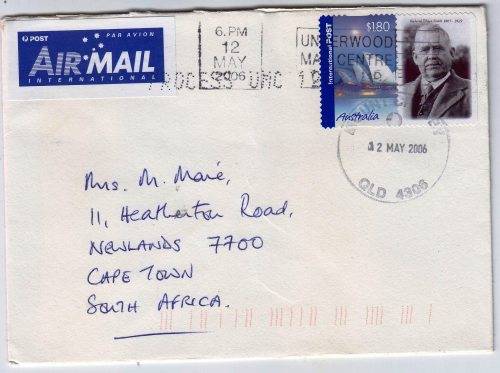 POST PAR AVION
AIR MAIL
INTERNATIONAL
6.PM
12
MAY
2006
UNDERWOOD
MAIL CENTRE
PROCESS UMC
$1.80
International POST
Australia
12 MAY 2006
QLD 4306
Mrs. M. Maré,
11, Heatherton Road,
NEWLANDS 7700
CAPE TOWN
SOUTH AFRICA.